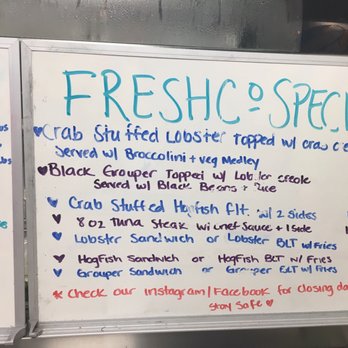 FRESHCO SPECI
Crab Stuffed Lobster Topped w/ craw
Served w/ Broccolini + veg Medley
Black Grouper Topped w/ Lobster creole
Served w/ Black Beans + Rice
Crab Stuffed Hogfish flt. w/ 2 Sides
8 oz Tuna Steak w/ chef Sauce + 1 Side
Lobster Sandwich or Lobster BLT w/ Fries
Hogfish Sandwich or Hogfish BLT w/ Fries
Grouper Sandwich or Grouper BLT w/ Fries
* Check our instagram / Facebook for closing da
Stay Safe